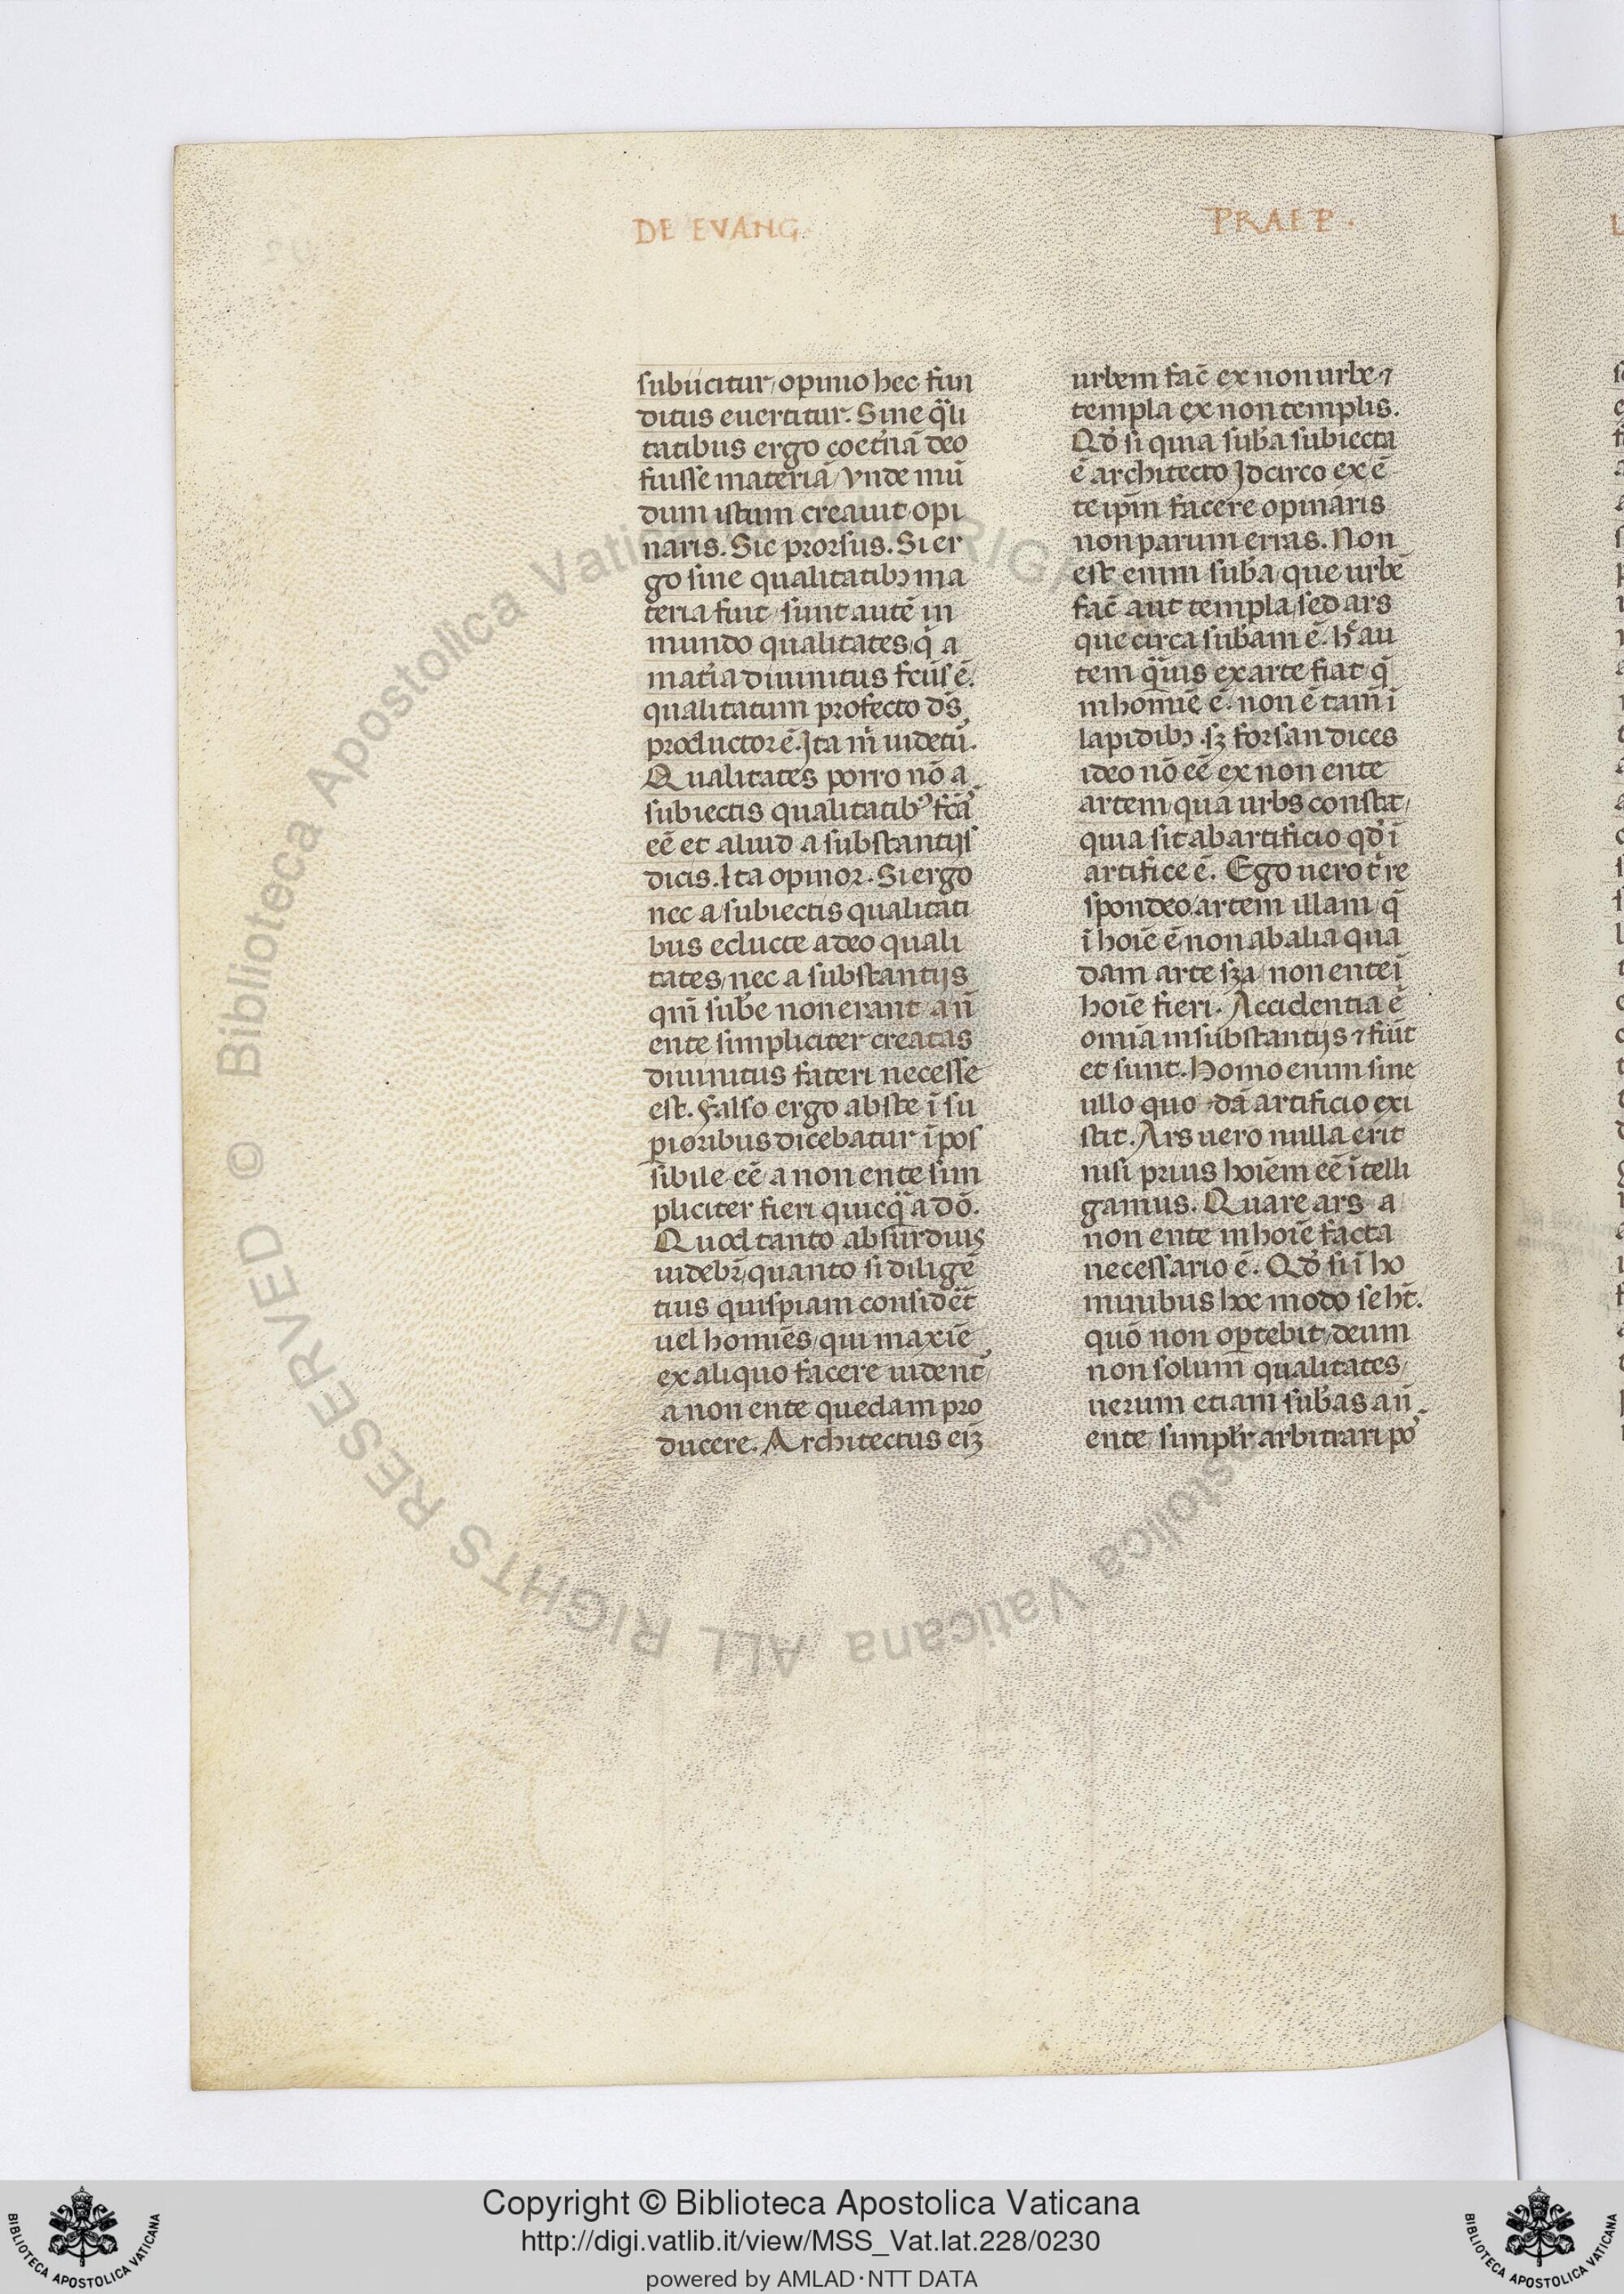 DE EVANG
PRAEP.
subiicitur/opinio hec fun
ditus euertitur. Sine q̃li
tatibus ergo coet̃nã deo
fuisse materiã/vnde mũ
dum istum creauit opi
naris. Sic prorsus. Si er
go sine qualitatibꝫ ma
teria fuit/sunt autẽ in
mundo qualitates/q̃ a
mat̃ia diuinitus fctũs ẽ.
qualitatum profecto ds̃
productor ẽ. Ita m̃ uidetũ.
Qualitates porro nõ a
subiectis qualitatibꝰ fcã
eẽ et aliud a substantijs
dicis. Ita opinor. Si ergo
nec a subiectis qualitati
bus educte a deo quali
tates/nec a substantijs
qm̃ sub̃e non erant a ñ
ente simpliciter creatas
diuinitus fateri necesse
est. Falso ergo abs te ĩ su
pioribus dicebatur ĩpos
sibile eẽ a non ente sim
pliciter fieri quicq̃ a dõ.
Quod tanto absurdius
uidebr̃/quanto si diligẽ
tius quispiam consideẽt
uel homiẽs/qui maxiẽ
ex aliquo facere uident̃/
a non ente quedam pro
ducere. Architectus eiꝫ
urbem fac̃ ex non urbe ⁊
templa ex non templis.
Qd̃ si quia sub̃a subiecta
ẽ architecto Idcirco ex ẽ
te ip̃m facere opinaris
non parum erras. Non
est enim sub̃a/que urbẽ
fac̃ aut templa/sed ars
que circa sub̃am ẽ. hc̃ au
tem q̃uis ex arte fiat q̃
in homiẽ ẽ. non ẽ tam̃ ĩ
lapidibꝫ. sꝫ forsan dices
ideo nõ eẽ ex non ente
artem/qua urbs constat/
quia sit ab artificio qd̃ ĩ
artifice ẽ. Ego uero t̃ re
spondeo artem illam/q̃
ĩ hoiẽ ẽ/non ab alia qua
dam arte sꝫ a/non ente ĩ
hoiẽ fieri. Accidentia ẽ
omĩa in substantijs ⁊ fiũt
et sunt. Homo enim sine
ullo quo dã artificio exi
stit. Ars uero nulla erit
nisi prius hoiẽm eẽ ĩtelli
gamus. Quare ars a
non ente in hoiẽ facta
necessario ẽ. Qd̃ si ĩ ho
minibus hoc modo se ht̃.
quõ non optebit/deum
non solum qualitates/
uerum etiam sub̃as a ñ
ente/simplr̃ arbitrari po
Copyright © Biblioteca Apostolica Vaticana
http://digi.vatlib.it/view/MSS_Vat.lat.228/0230
powered by AMLAD·NTT DATA
© Biblioteca Apostolica Vaticana ALL RIGHTS RESERVED
BIBLIOTECA APOSTOLICA VATICANA
BIBLIOTECA APOSTOLICA VATICANA